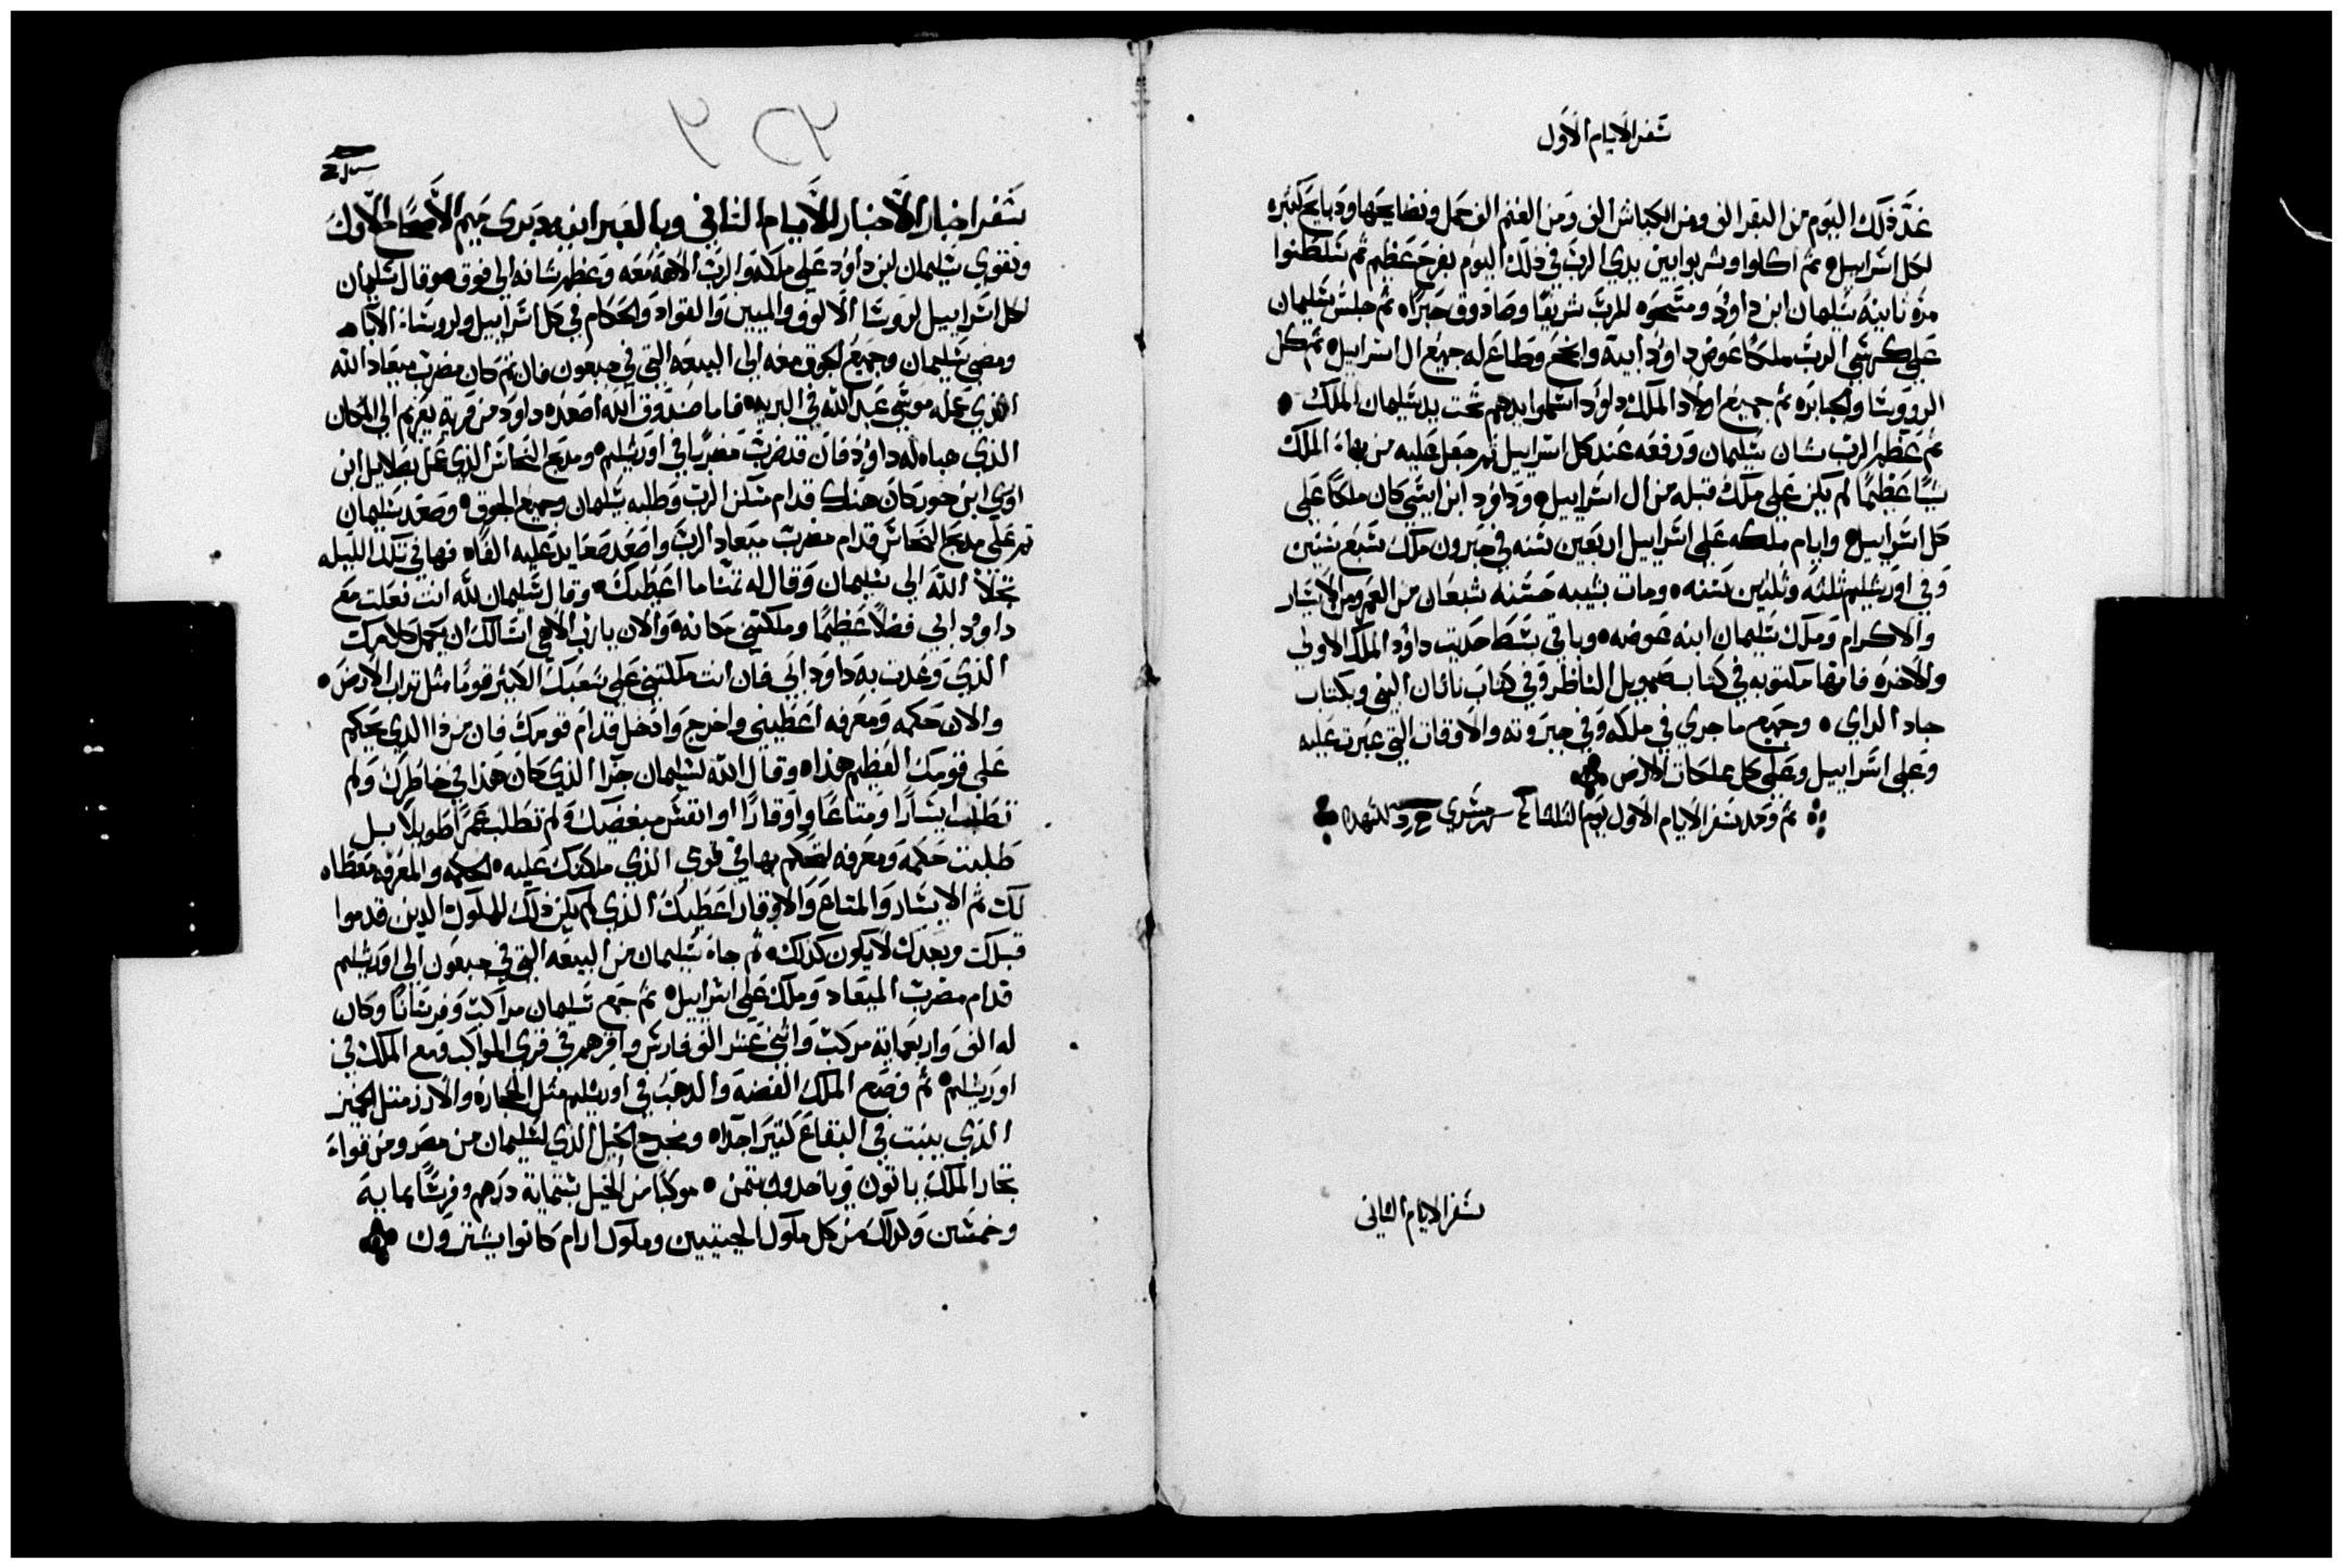 سفر الايام الاول
غد ذلك اليوم من البقر الف ومن الكباش الف ومن الغنم الف حمل ونضايحها ودبايح كثيره
لكل اسراييل ثم اكلوا وشربوا بين يدي الرب في ذلك اليوم بفرح عظيم ثم سلطنوا
مرة ثانية سليمان ابن داوود ومسحوه للرب شريفا وصادوق حبرا ثم جلس سليمان
علي كرسي الرب ملكا عوض داوود ابيه وانجح وطاع له جميع ال اسراييل ثم كل
الرووسا والجبابره ثم جميع اولاد الملك داوود اسلموا يدهم تحت يد سليمان الملك
ثم عظم الرب شان سليمان ورفعه عند كل اسراييل ثم جعل عليه من بهاء الملك
شيا عظيما لم يكن علي ملك قبله من ال اسراييل وداوود ابن ايشي كان ملكا علي
كل اسراييل وايام ملكه علي اسراييل اربعين سنه في حبرون ملك سبع سنين
وفي اورشليم ثلثه وثلثين سنه ومات بشيبه حسنه شبعان من العمر ومن الايسار
والاكرام وملك سليمان ابنه عوضه وباقي بسط حديت داوود الملك الاولي
والاخره فانها مكتوبه في كتاب صمويل الناظر وفي كتاب ناثان النبي وبكتاب
جاد الراي وجميع ما جري في ملكه وفي جبروته والاوقات التي عبرت عليه
وعلي اسراييل وعلي كل مملكات الارض
تم وكمل سفر الايام الاول يوم الثلثا
سفر الايام الثاني
سفر اخبار الاخبار للايام الثاني وبالعبرانيه دبري هيم الاصحاح الاول
وتقوي سليمان ابن داوود علي ملكه والرب الاهه معه وعظم شانه الي فوق وقال سليمان
لكل اسراييل لروسا الالوف والميين والقواد والحكام في كل اسراييل ولروسا الابا
ومضي سليمان وجميع الجوق معه الي البيعه التي في جبعون فان ثم كان مضرب ميعاد الله
الذي عمله موسي عبد الله في البريه فاما صندوق الله اصعده داوود من قرية يعريم الي المكان
الذي هياه له داوود فان قد ضرب مضربا في اورشليم ومدبح النحاس الذي عمل بصلاييل ابن
اوري ابن حور كان هناك قدام مسكن الرب وطلبه سليمان وجميع الجوق وصعد سليمان
ثم علي مدبح النحاس قدام مضرب ميعاد الرب واصعد صعايد عليه الفا فهاني تلك الليله
تجلا الله الي سليمان وقال له تمنا ما اعطيك وقال سليمان لله انت فعلت مع
داوود ابي فضلا عظيما وملكتني مكانه والان يا رب الاهي اسالك ان يكمل كلامك
الذي وعدت به داود ابي فان انت ملكتني علي شعبك الكثير قوما مثل تراب الارض
والان حكمه ومعرفه اعطيني واخرج وادخل قدام قومك فان من ذا الذي يحكم
علي قومك العظيم هذا وقال الله لسليمان جزا الذي كان هذا في خاطرك ولم
تطلب ايسارا ومتاعا واوقارا او انفس مبغضيك ولم تطلب عمرا طويلا بل
طلبت حكمة ومعرفه لتحكم بها في قومي الذي ملكتك عليه الحكمه والمعرفه معطاه
لك ثم الايسار والمتاع والاوقار اعطيك الذي لم يكن ذلك للملوك الدين قدموا
قبلك وبعدك لا يكون كذلك ثم جاء سليمان من البيعه التي في جبعون الي اورشليم
قدام مضرب الميعاد وملك علي اسراييل ثم جمع سليمان مراكب وفرسانا وكان
له الف واربعماية مركب واثني عشر الف فارس واقرهم في قري المراكب ومع الملك في
اورشليم ثم وضع الملك الفضه والدهب في اورشليم مثل الحجاره والارز مثل الجميز
الذي ينبت في البقاع كثيرا جدا ومخرج الخيل الذي لسليمان من مصر ومن قواء
تجار الملك ياتون وياخدون بتمن موكبا من الخيل بستماية درهم وفرسا بماية
وخمسين وكذلك من كل ملوك الحيتيين وملوك ارام كانوا يشترون